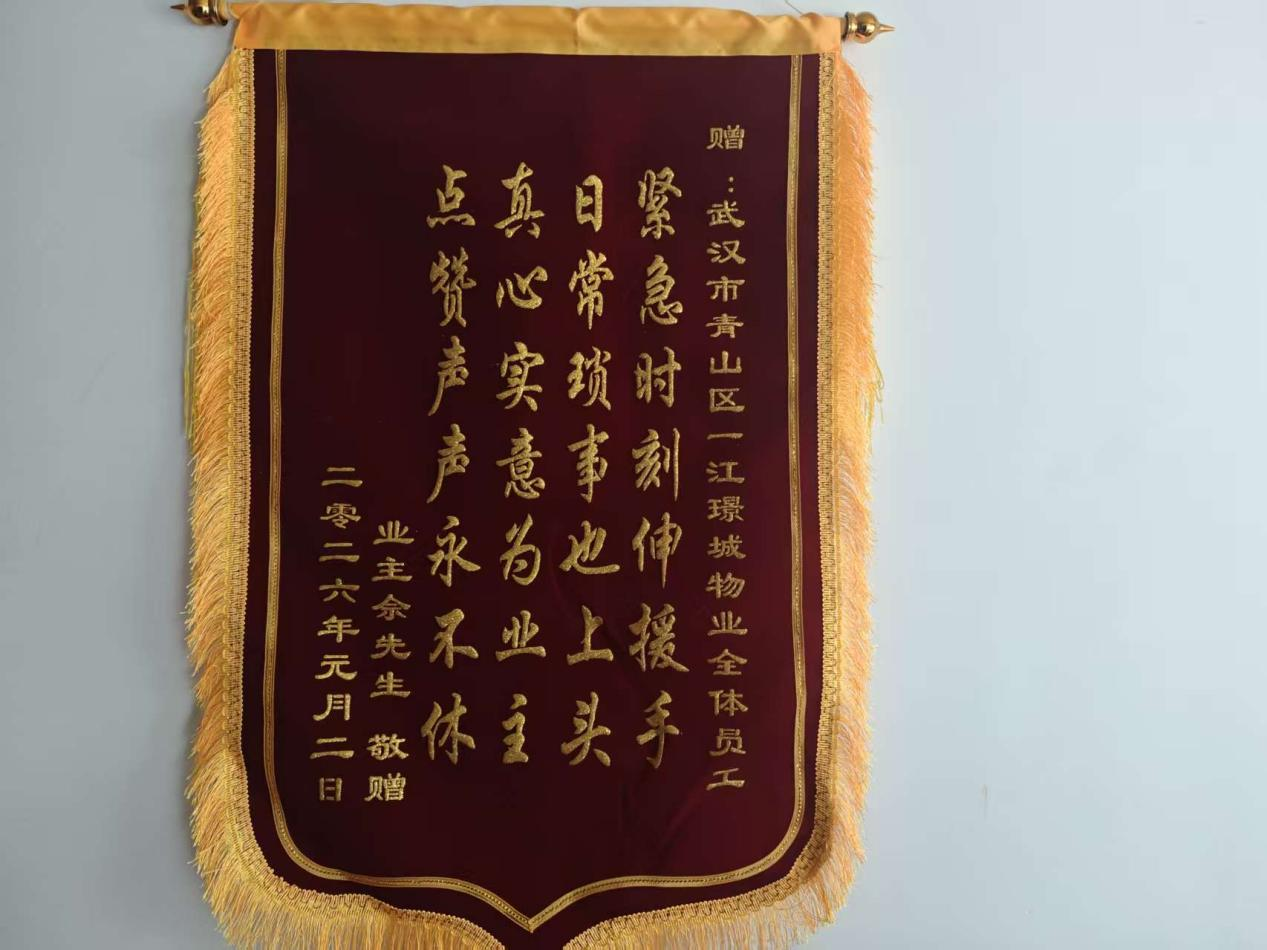 赠：武汉市青山区一江璟城物业全体员工
紧急时刻伸援手
日常琐事也上头
真心实意为业主
点赞声声永不休
业主佘先生 敬赠
二零二六年元月二日